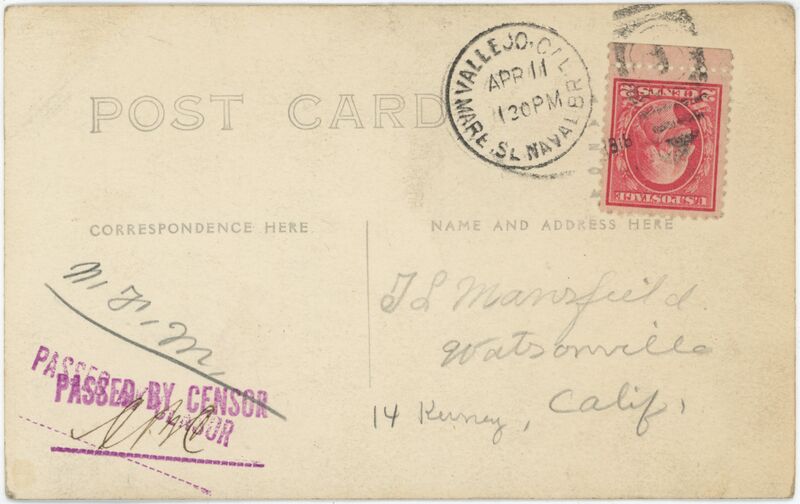 VALLEJO, CAL.
APR 11
1 30 PM
MARE. SL NAVAL BR
1918
2 CENTS 2
U.S. POSTAGE
POST CARD
CORRESPONDENCE HERE
NAME AND ADDRESS HERE
T L Mansfield
Watsonville
14 Kerney, Calif,
PASSED BY CENSOR
PASSED BY CENSOR